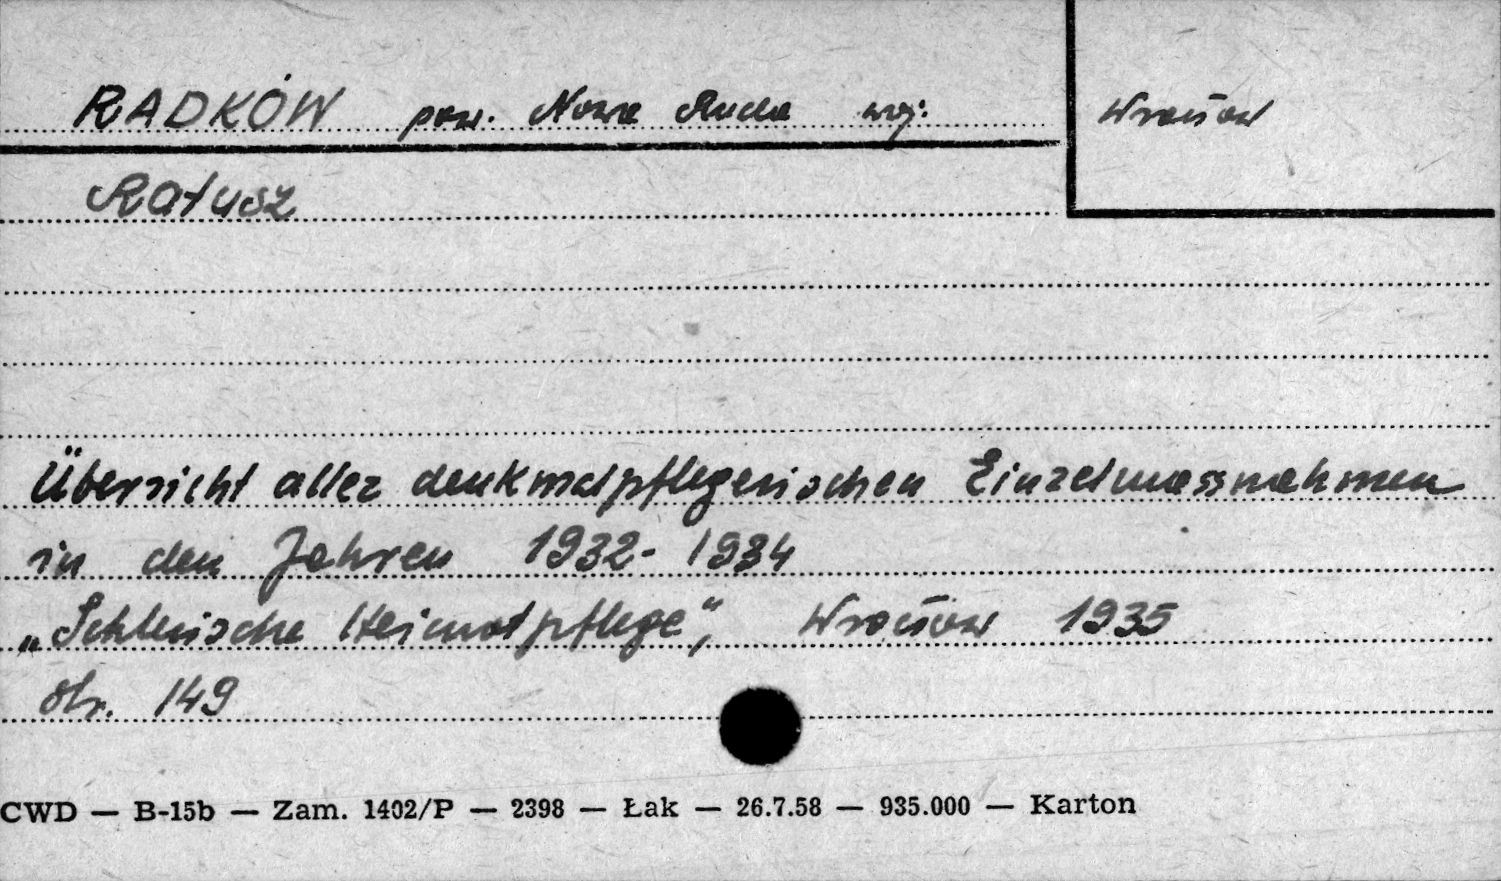 RADKÓW pow. Nowa Ruda woj. Wrocław
Ratusz
Übersicht aller denkmalpflegerischen Einzelmassnahmen
in den Jahren 1932-1934
„Schlesische Heimatpflege", Wrocław 1935
str. 149
CWD — B-15b — Zam. 1402/P — 2398 — Łak — 26.7.58 — 935.000 — Karton